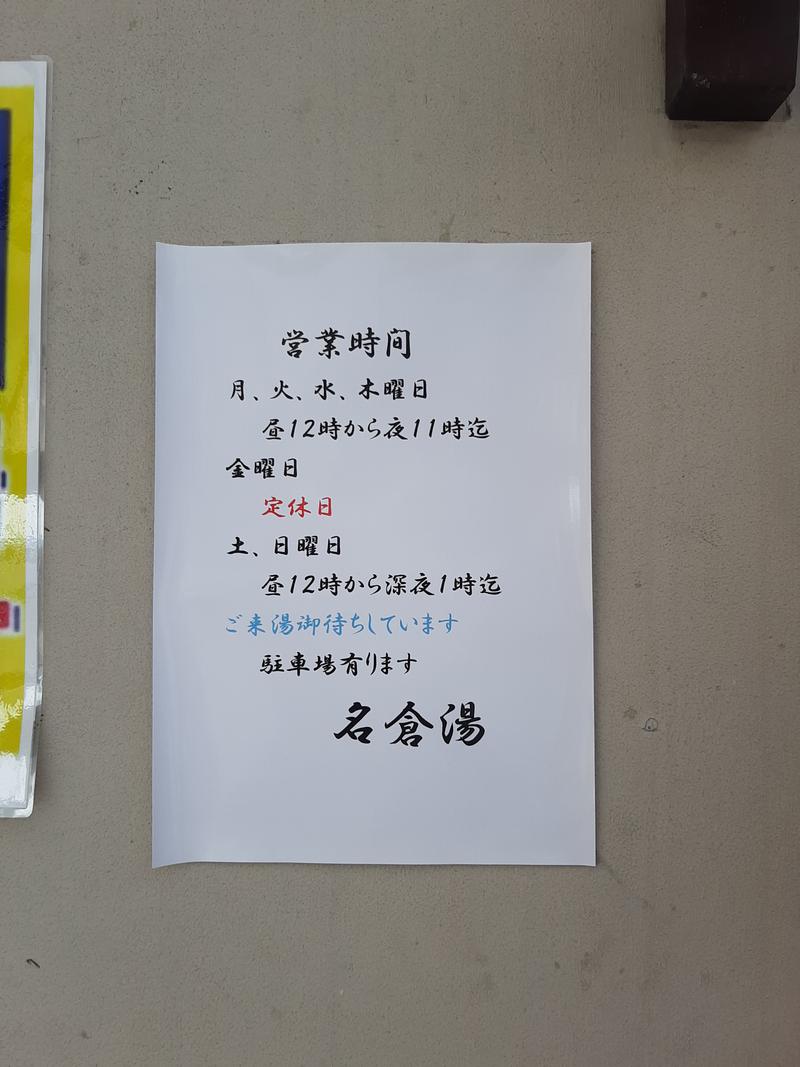 営業時间
月、火、水、木曜日
昼12時から夜11時迄
金曜日
定休日
土、日曜日
昼12時から深夜1時迄
ご来湯御待ちしています
駐車場有ります
名倉湯